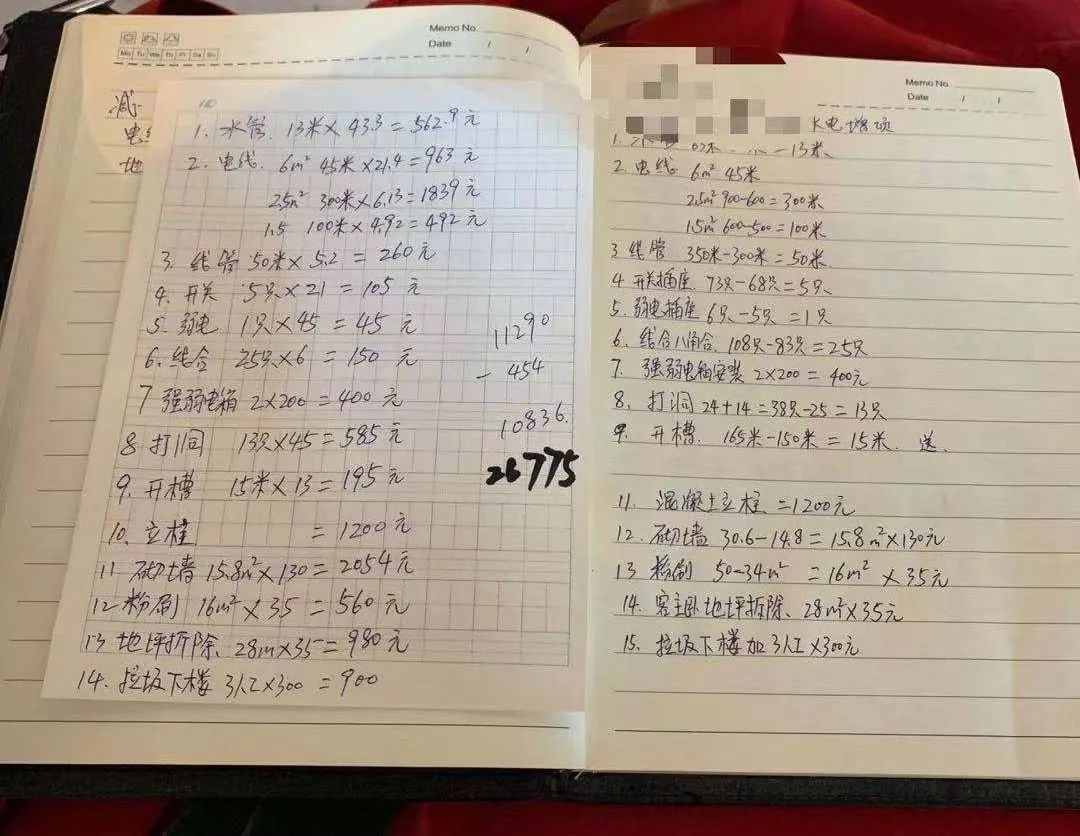 Memo No.
Date / /
Mo Tu We Th Fr Sa Su
减
电
地
1. 水管. 13米×43.3=562.9元
2. 电线. 6m² 45米×21.4=963元
2.5m² 300米×6.13=1839元
1.5 100米×4.92=492元
3. 线管 50米×5.2=260元
4. 开关 5只×21=105元
5. 弱电 1只×45=45元
6. 线合 25只×6=150元
7 强弱电箱 2×200=400元
8 打洞 13只×45=585元
9. 开槽 15米×13=195元
10. 立柱 =1200元
11 砌墙 15.8m²×130=2054元
12 粉刷 16m²×35=560元
13 地坪拆除. 28m×35=980元
14. 垃圾下楼 3人工×300=900
11290
- 454
10836.
26775
Memo No.
Date / /
水电增项
1. 一13米.
2. 电线. 6m² 45米
2.5m² 900-600=300米
1.5m² 600-500=100米
3 线管 350米-300米=50米
4 开关插座 73只-68只=5只.
5. 弱电插座 6只-5只=1只
6. 线合八角合. 108只-83只=25只
7. 强弱电箱安装 2×200=400元
8. 打洞 24+14=38只-25=13只
9. 开槽. 165米-150米=15米. 送.
11. 混凝土立柱 =1200元
12. 砌墙 30.6-14.8=15.8m²×130元
13 粉刷 50-34m²=16m²×35元
14. 客主卧地坪拆除. 28m²×35元
15. 垃圾下楼加3人工×300元